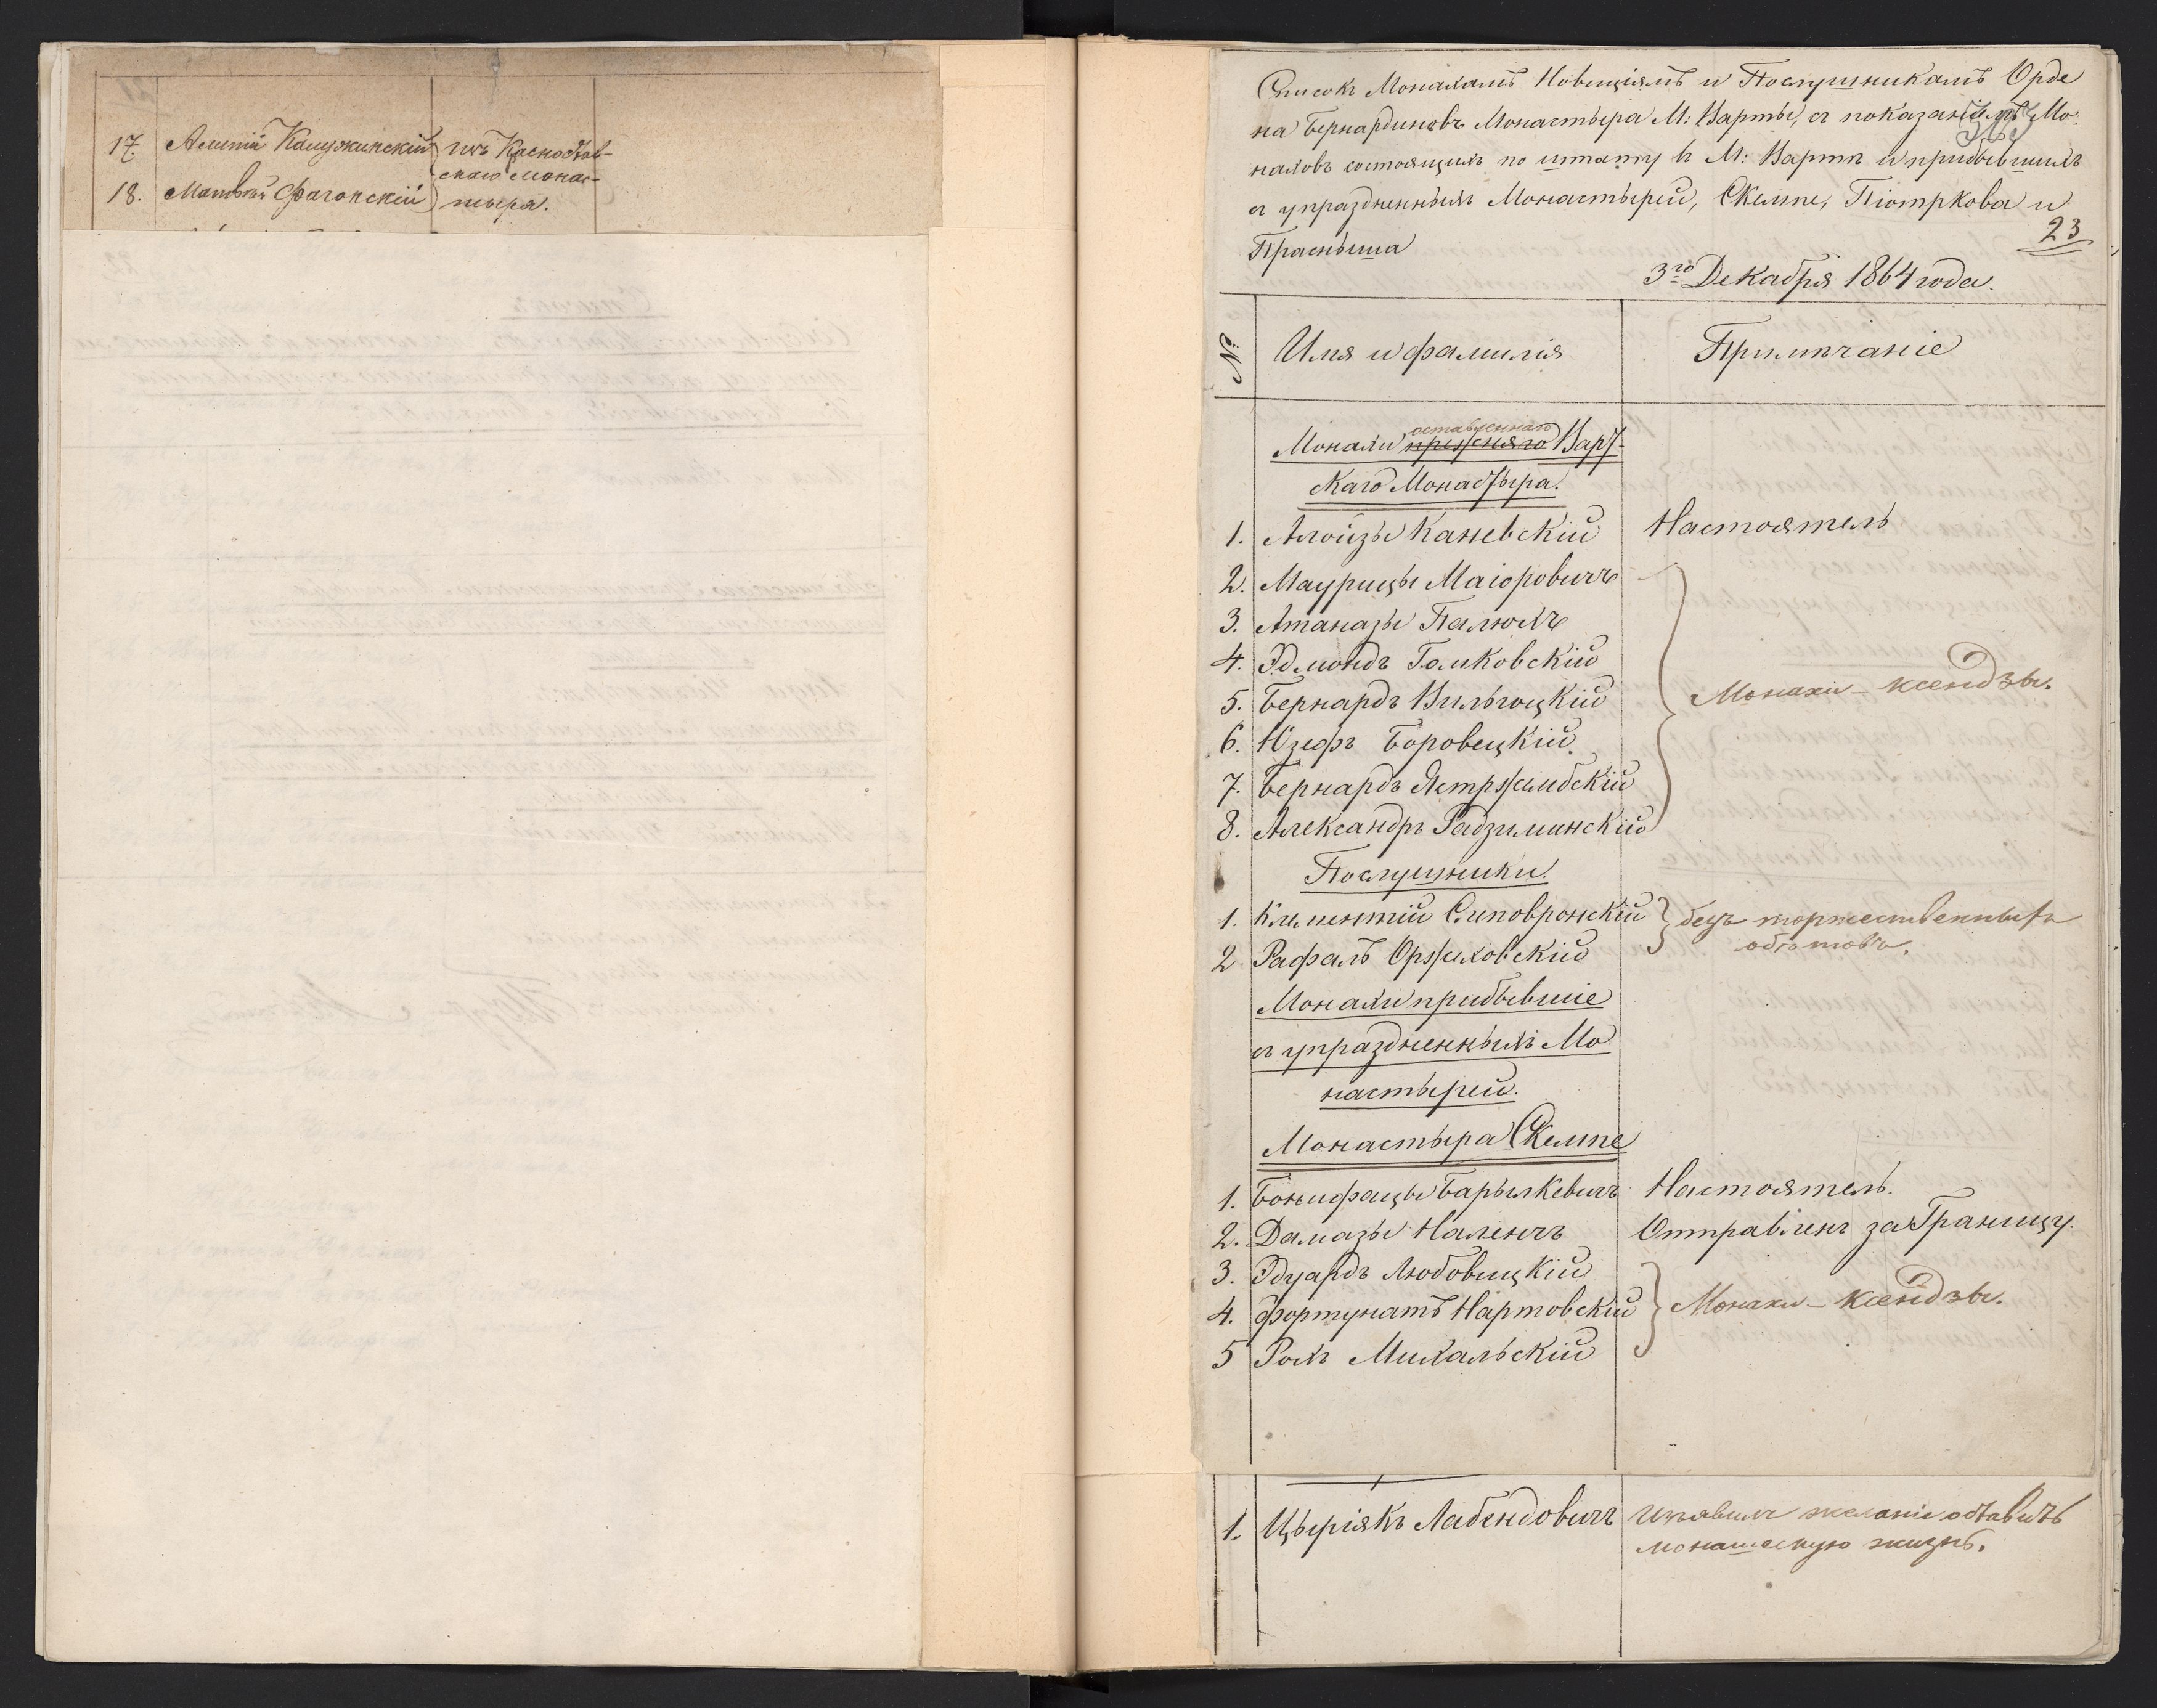 17. Алипій Калужинскій изъ Красностав-
скаго монас-
18. Матвѣй Фагонскій тыря.
Списокъ Монахамъ Новиціямъ и Послушникамъ Орде
на Бернардиновъ Монастыра М: Варты, съ показаніемъ Мо
наховъ состоящихъ по штату въ М: Вартѣ и прибывшихъ
съ упраздненныхъ Монастырей, Скемпе, Піотркова и
Прасныша
23
3го Декабря 1864 года.
№ Имя и фамилія Примѣчаніе
оставленнаго
Монахи прежняго Варт-
скаго Монастыра.
1. Алоизы Каневскій Настоятель
2. Маурицы Маіоровичъ
3. Атаназы Палюхъ
4. Эдмондъ Голковскій
Монахи-ксендзы.
5. Бернардъ Вильгоцкій
6. Юзефъ Боровецкій
7. Бернардъ Ястржембскій
8. Александръ Радзиминскій
Послушники.
1. Климентій Сиповронскій безъ торжественныхъ
обѣтовъ.
2 Рафалъ Оржеховскій
Монахи прибывшіе
съ упраздненныхъ Мо
настырей.
Монастыра Скемпе
1. Бонифацы Барылкевичъ Настоятель.
2. Дамазы Наленчъ Отправленъ за Границу.
3. Эдуардъ Любовицкій
4. Фортунатъ Нартовскій Монахи-ксендзы.
5 Рохъ Михальскій
1. Цыріякъ Лабендовичъ Изъявилъ желаніе оставить
монашескую жизнь.